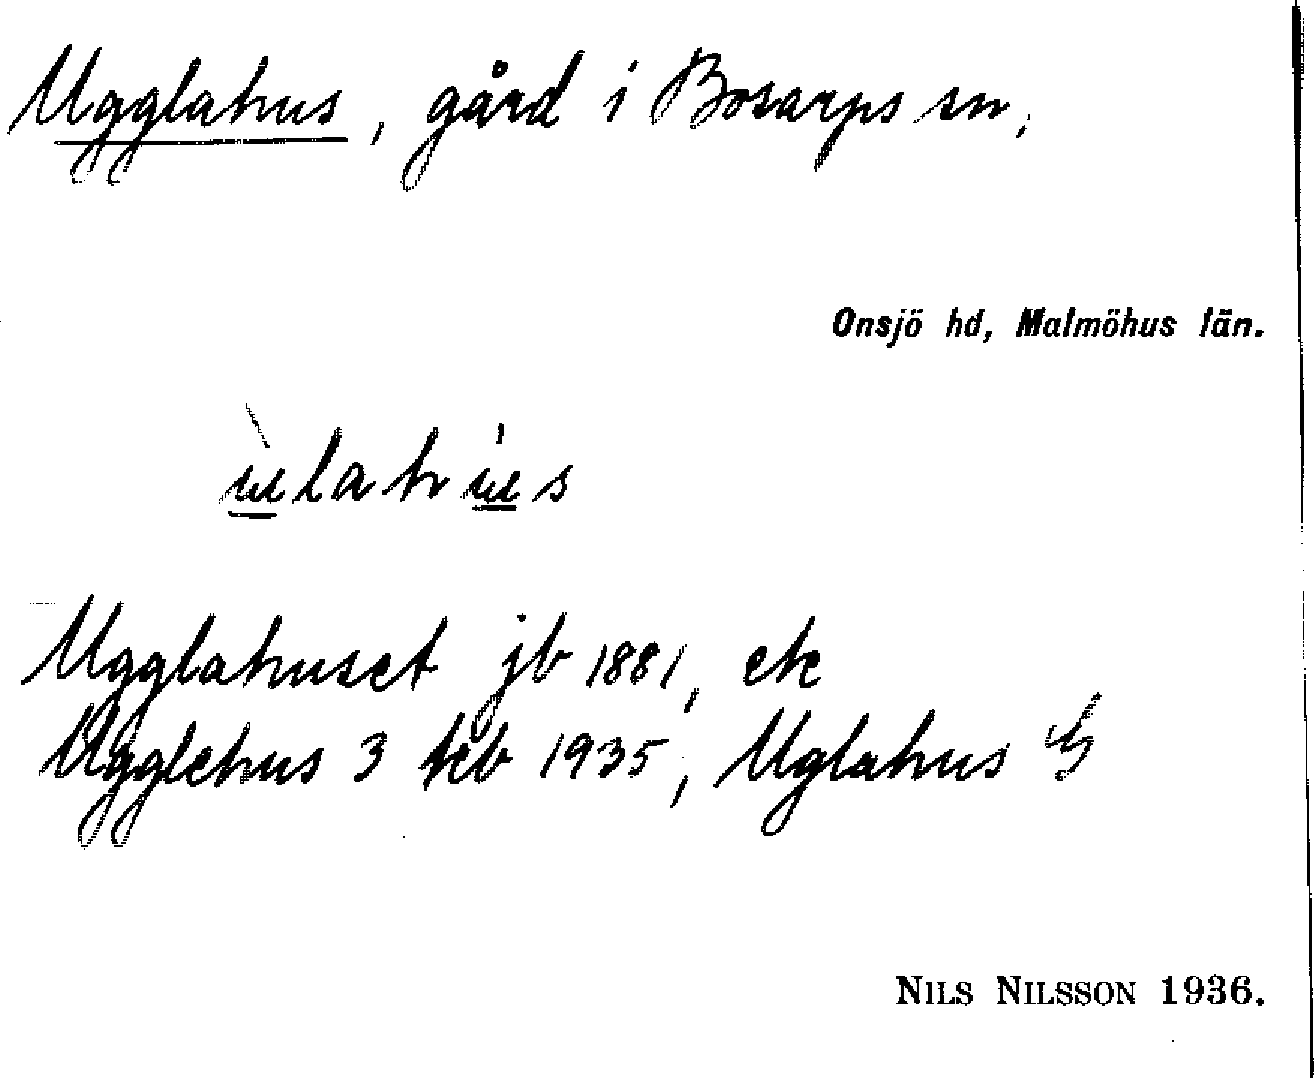 Ugglahus, gård i Bosarps sn,
Onsjö hd, Malmöhus län.
ùlahús
Ugglahuset jb 1881, ek
Ugglehus 3 jeb 1935, Uglahus G
NILS NILSSON 1936.